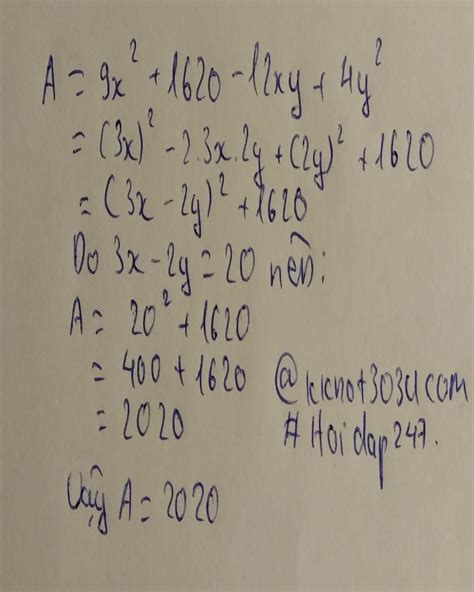 A = 9x² + 1620 - 12xy + 4y²
= (3x)² - 2.3x.2y + (2y)² + 1620
= (3x - 2y)² + 1620
Do 3x - 2y = 20 nên:
A = 20² + 1620
= 400 + 1620
= 2020
@kknot303ucom
# Hoidap247.
Vậy A = 2020